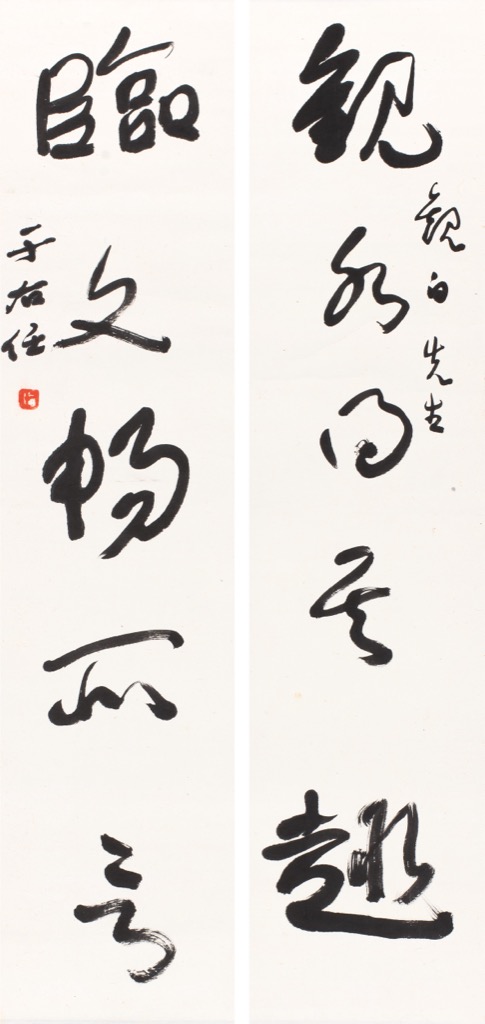 觀水得其趣
觀白先生
臨文暢所言
于右任